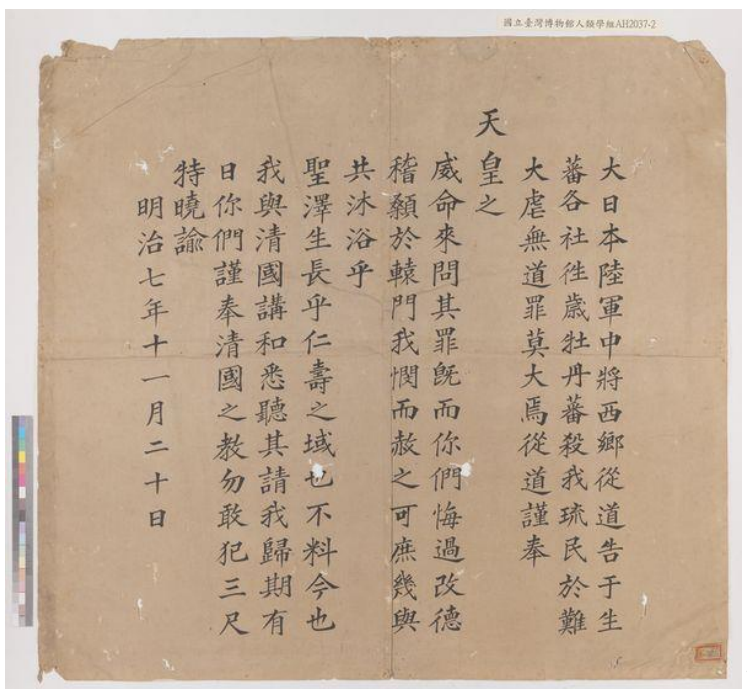 國立臺灣博物館人類學組AH2037-2
大日本陸軍中將西郷從道告于生
蕃各社徃歳牡丹蕃殺我琉民於難
大虐無道罪莫大焉從道謹奉
天皇之
威命來問其罪既而你們悔過改德
稽顙於轅門我憫而赦之可庶幾與
共沐浴乎
聖澤生長乎仁壽之域也不料今也
我與清國講和悉聽其請我歸期有
日你們謹奉清國之教勿敢犯三尺
特曉諭
明治七年十一月二十日